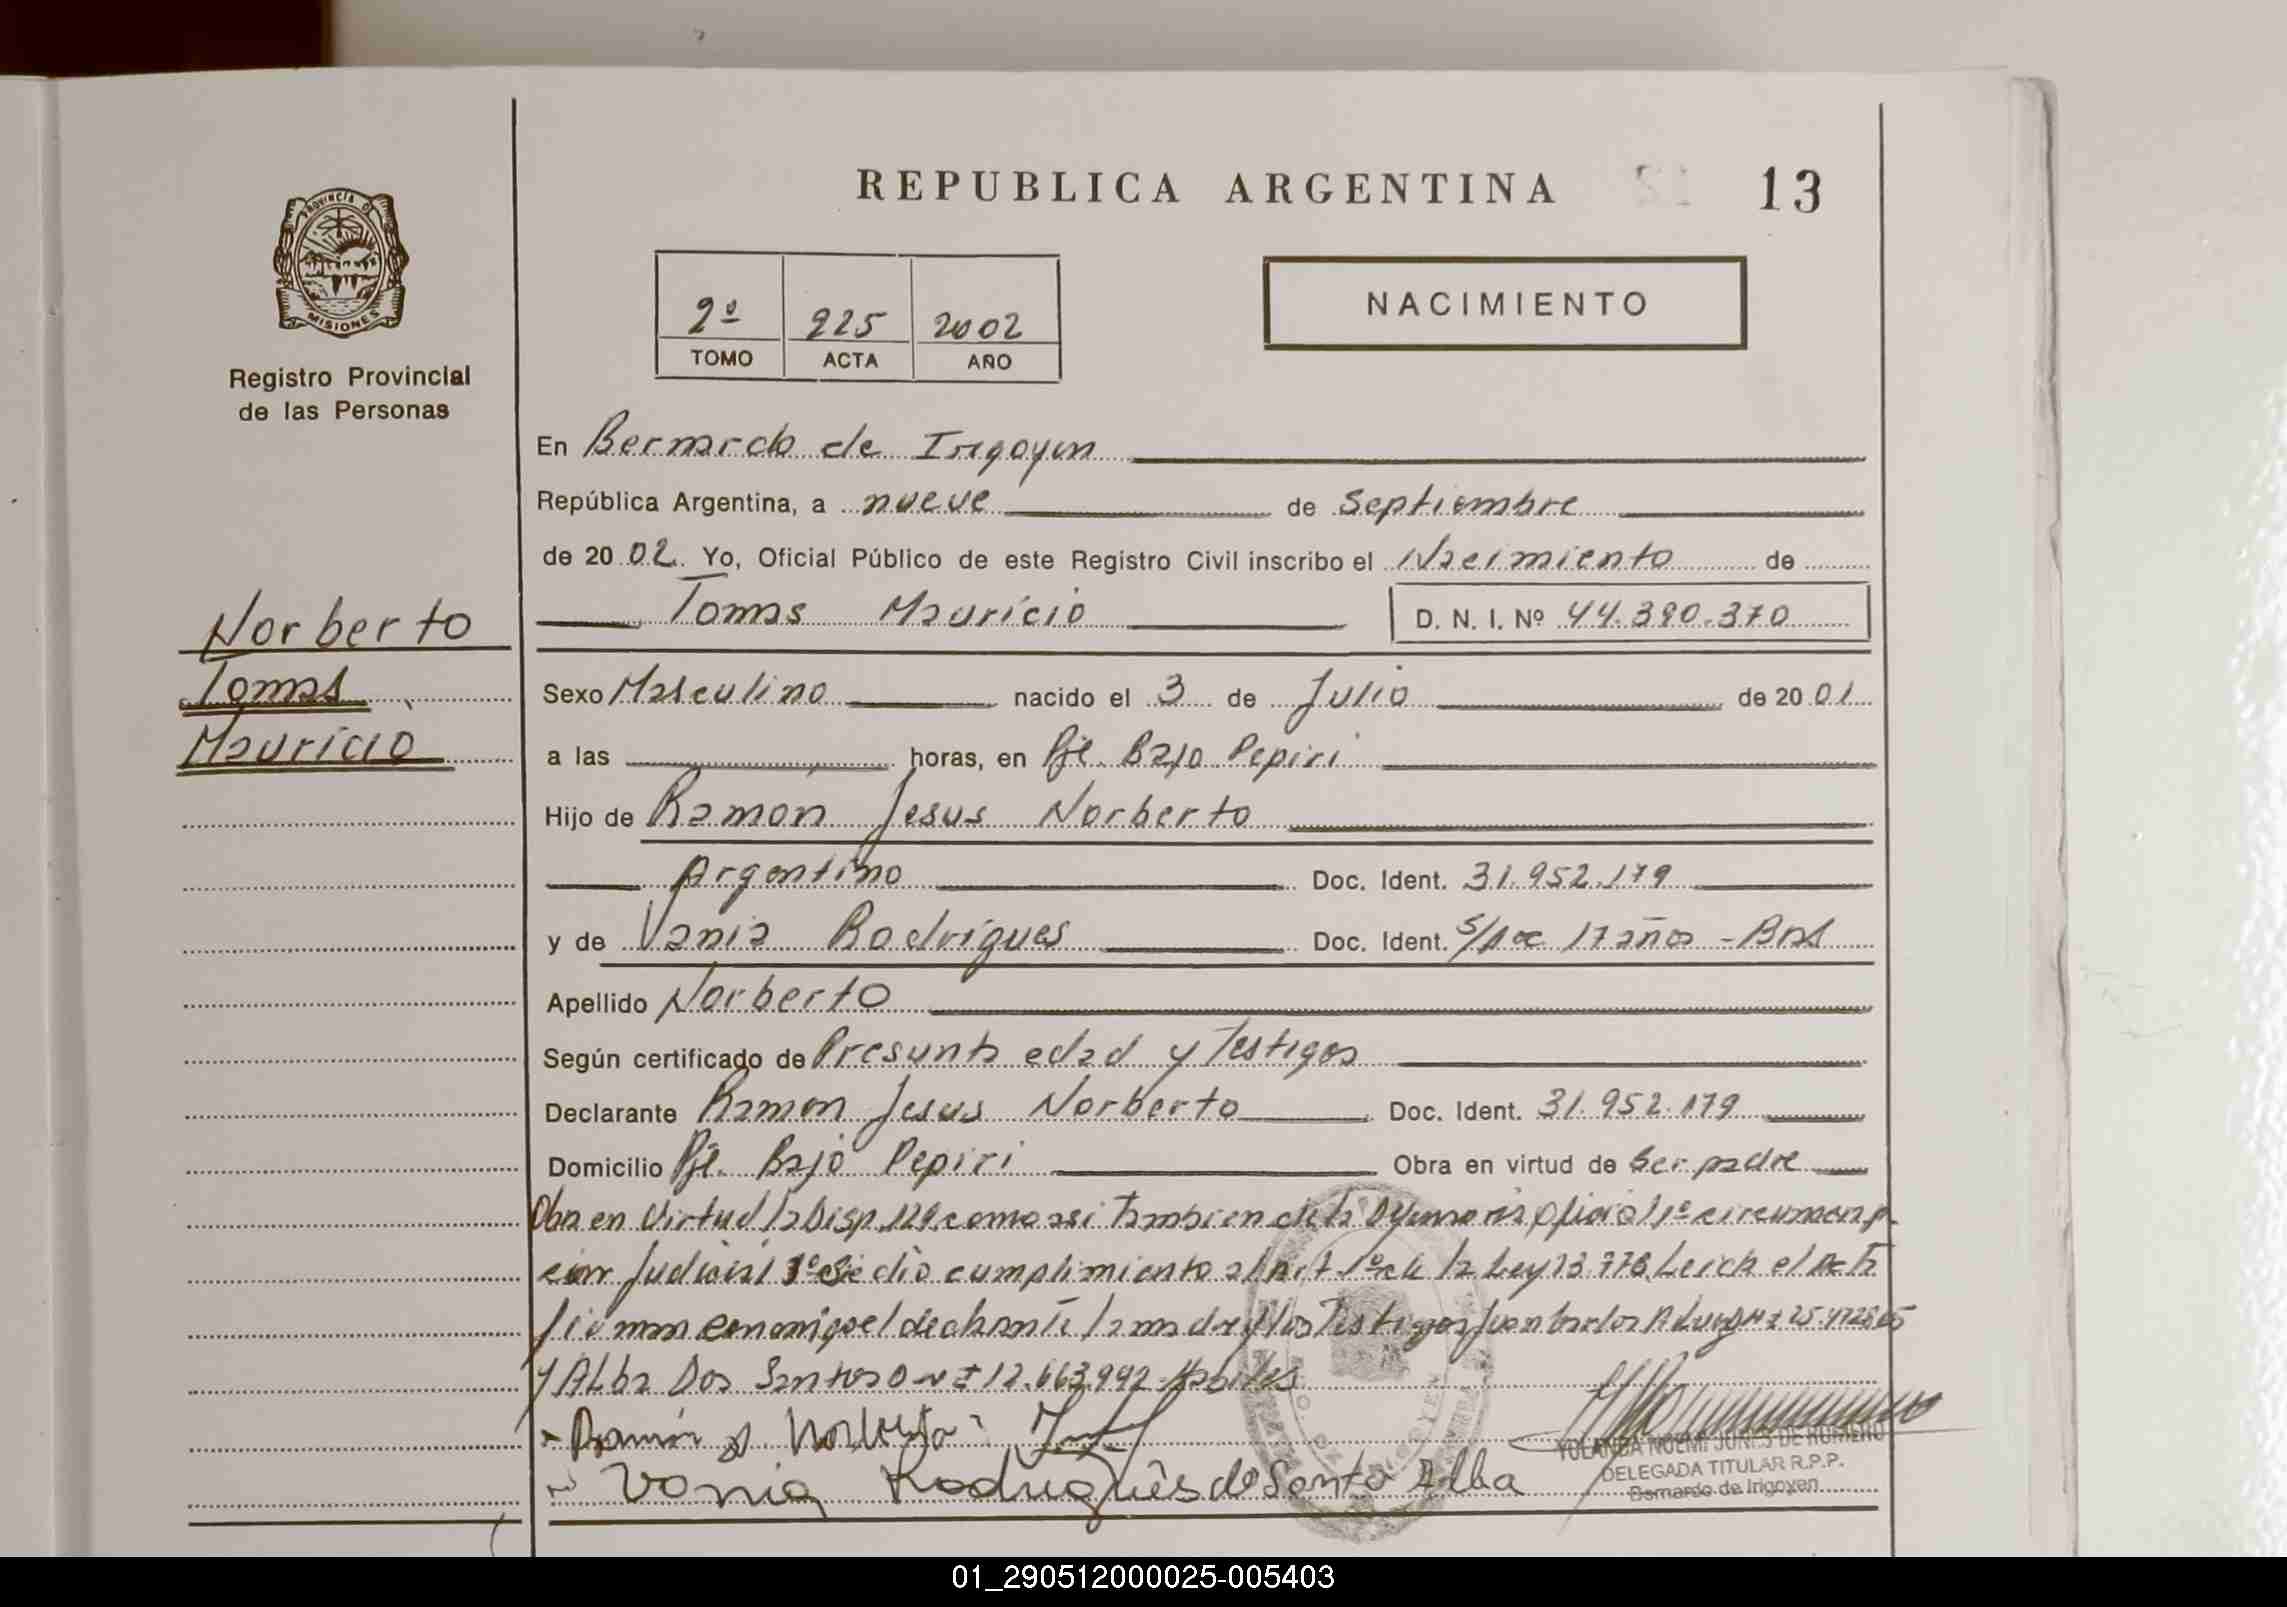 REPUBLICA ARGENTINA 13
PROVINCIA DE
MISIONES
Registro Provincial
de las Personas
NACIMIENTO
2º 225 2002
TOMO ACTA AÑO
En Bernardo de Irigoyen
República Argentina, a nueve de Septiembre
de 2002. Yo, Oficial Público de este Registro Civil inscribo el Nacimiento de
Tomas Mauricio D. N. I. Nº 44.390.370
Norberto
Tomas
Mauricio
Sexo Masculino nacido el 3 de Julio de 2001
a las horas, en Pje. Bajo Pepiri
Hijo de Ramón Jesus Norberto
Argentino Doc. Ident. 31.952.179
y de Vania Rodrigues Doc. Ident. S/Doc 17 años - Bras
Apellido Norberto
Según certificado de Presunta edad y Testigos
Declarante Ramon Jesus Norberto Doc. Ident. 31.952.179
Domicilio Pje. Bajo Pepiri Obra en virtud de ser padre
Obra en Virtud la Disp. 129 como asi Tambien de la oficial 1º circunscrip
cion Judicial se dio cumplimiento al Art 1º de la Ley 23.776 Leida el Acta
firman conmigo el declarante la madre y los Testigos Juan Carlos
y Alba Dos Santos 12.663.942 Habiles
Ramón J Norberto
Vania Rodriguês do Santo Alba
YOLANDA NOEMI JONES DE ROMERO
DELEGADA TITULAR R.P.P.
Bernardo de Irigoyen
01_290512000025-005403